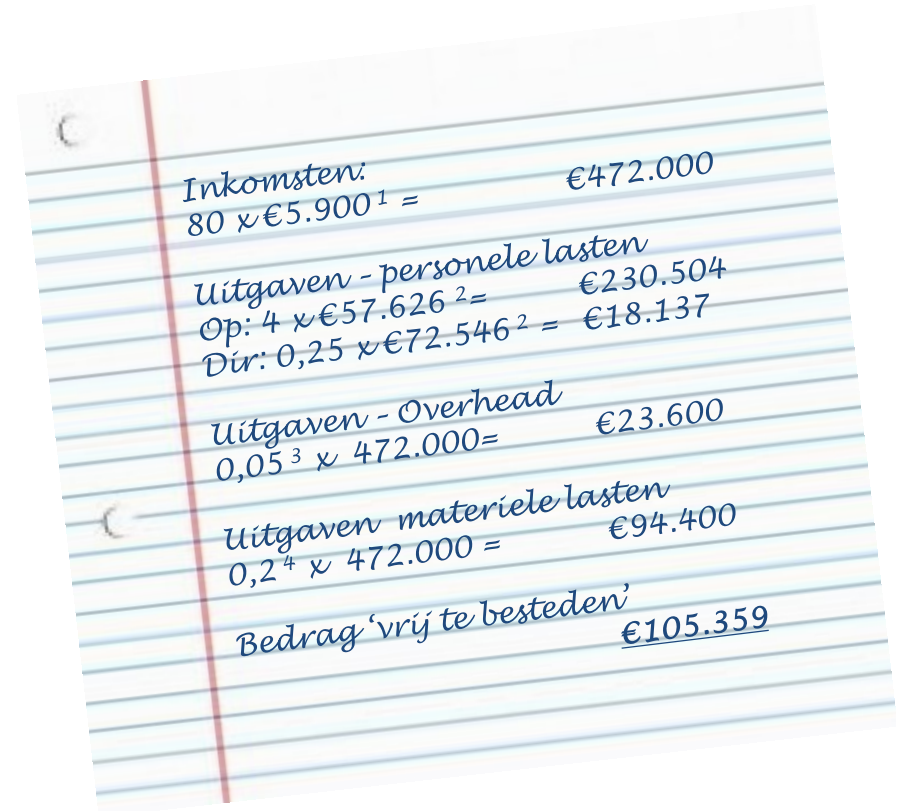 Inkomsten:
80 x €5.900¹ = €472.000
Uitgaven - personele lasten
Op: 4 x €57.626 ²= €230.504
Dir: 0,25 x €72.546² = €18.137
Uitgaven - Overhead
0,05³ x 472.000= €23.600
Uitgaven materiele lasten
0,2⁴ x 472.000 = €94.400
Bedrag ‘vrij te besteden’
€105.359